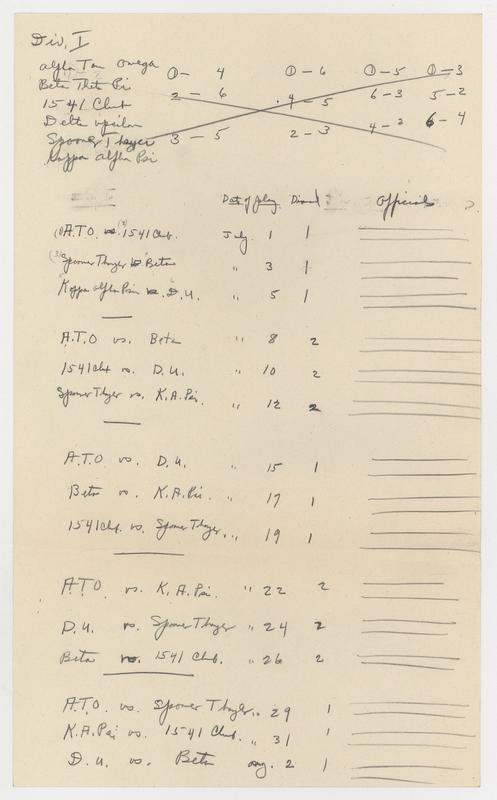 Div. I
Alpha Tau Omega ①- 4 ①- 6 ①-5 ①-3
Beta Theta Pi 2 - 6 4 - 5 6-3 5-2
1541 Club
Delta Upsilon 3 - 5 2 - 3 4-2 6-4
Spooner Thayer
Kappa Alpha Psi
Date of Play Diamond Officials
A.T.O vs. 1541 Club. July 1 1
Spooner Thayer vs Beta " 3 1
Kappa Alpha Psi vs. D.U. " 5 1
A.T.O vs. Beta " 8 2
1541 Club vs. D.U. " 10 2
Spooner Thayer vs. K.A.Psi. " 12 2
A.T.O vs. D.U. " 15 1
Beta vs. K.A.Psi. " 17 1
1541 Club. vs. Spooner Thayer. " 19 1
A.T.O. vs. K.A.Psi. " 22 2
D.U. vs. Spooner Thayer " 24 2
Beta vs. 1541 Club. " 26 2
A.T.O. vs. Spooner Thayer. " 29 1
K.A.Psi vs. 1541 Club. " 31 1
D.U. vs. Beta Aug. 2 1